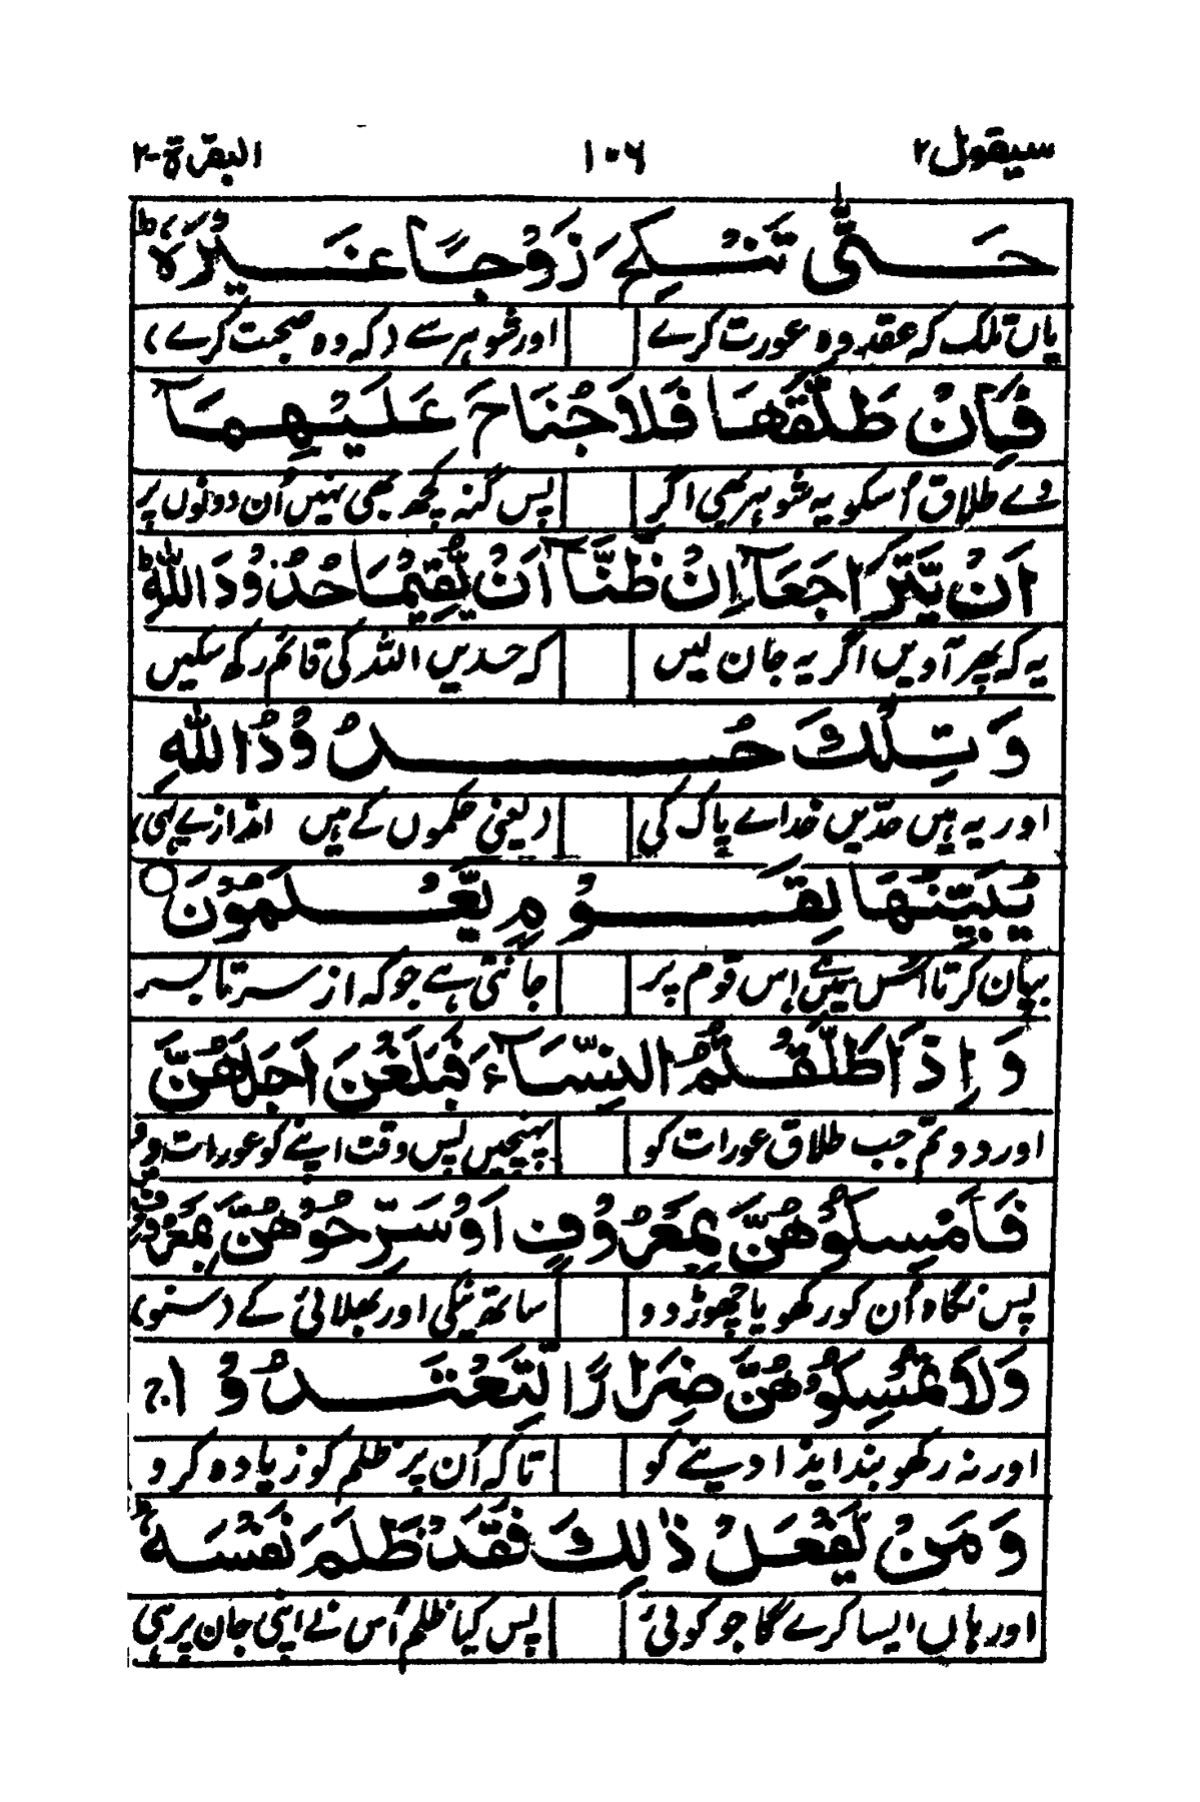 سیقول ۲ ۱۰۶ البقرۃ-۲
حَتّٰى تَنْكِحَ زَوْجًا غَيْرَهٗ ؕ
ہاں تلک کہ عقد وہ عورت کرے اور شوہر سے (کہ وہ صحبت کرے)
فَاِنْ طَلَّقَهَا فَلَا جُنَاحَ عَلَيْهِمَآ
دے طلاق اُسکو یہ شوہر بھی اگر پس گنہ کچھ بھی نہیں اُن دونوں پر
اَنْ يَّتَرَاجَعَآ اِنْ ظَنَّآ اَنْ يُّقِيْمَا حُدُوْدَ اللّٰهِ ؕ
یہ کہ پھر آویں اگر یہ جان لیں کہ حدیں اللہ کی قائم رکھ سکیں
وَ تِلْكَ حُدُوْدُ اللّٰهِ
اور یہ ہیں حدّیں خداے پاک کی (یعنی حکموں کے ہیں اندازے یہی)
يُبَيِّنُهَا لِقَوْمٍ يَّعْلَمُوْنَ ○
بیان کرتا اس قوم پر جانتی ہے جو کہ از سر تا بسر
وَ اِذَا طَلَّقْتُمُ النِّسَآءَ فَبَلَغْنَ اَجَلَهُنَّ
اور دو تم جب طلاق عورات کو پہنچیں پس وقت اپنے کو عورات وہ
فَاَمْسِكُوْهُنَّ بِمَعْرُوْفٍ اَوْ سَرِّحُوْهُنَّ بِمَعْرُوْفٍ
پس نگاہ اُن کو رکھو یا چھوڑ دو ساتھ نیکی اور بھلائی کے (سنو)
وَلَا تُمْسِكُوْهُنَّ ضِرَارًا لِّتَعْتَدُوْا ۚ
اور نہ رکھو بند ایذا دینے کو تاکہ اُن پر ظلم کو زیادہ کرو
وَ مَنْ يَّفْعَلْ ذٰلِكَ فَقَدْ ظَلَمَ نَفْسَهٗ ؕ
اور ہاں ایسا کرے گا جو کوئی پس کیا ظلم اُس نے اپنی جان پر ہی